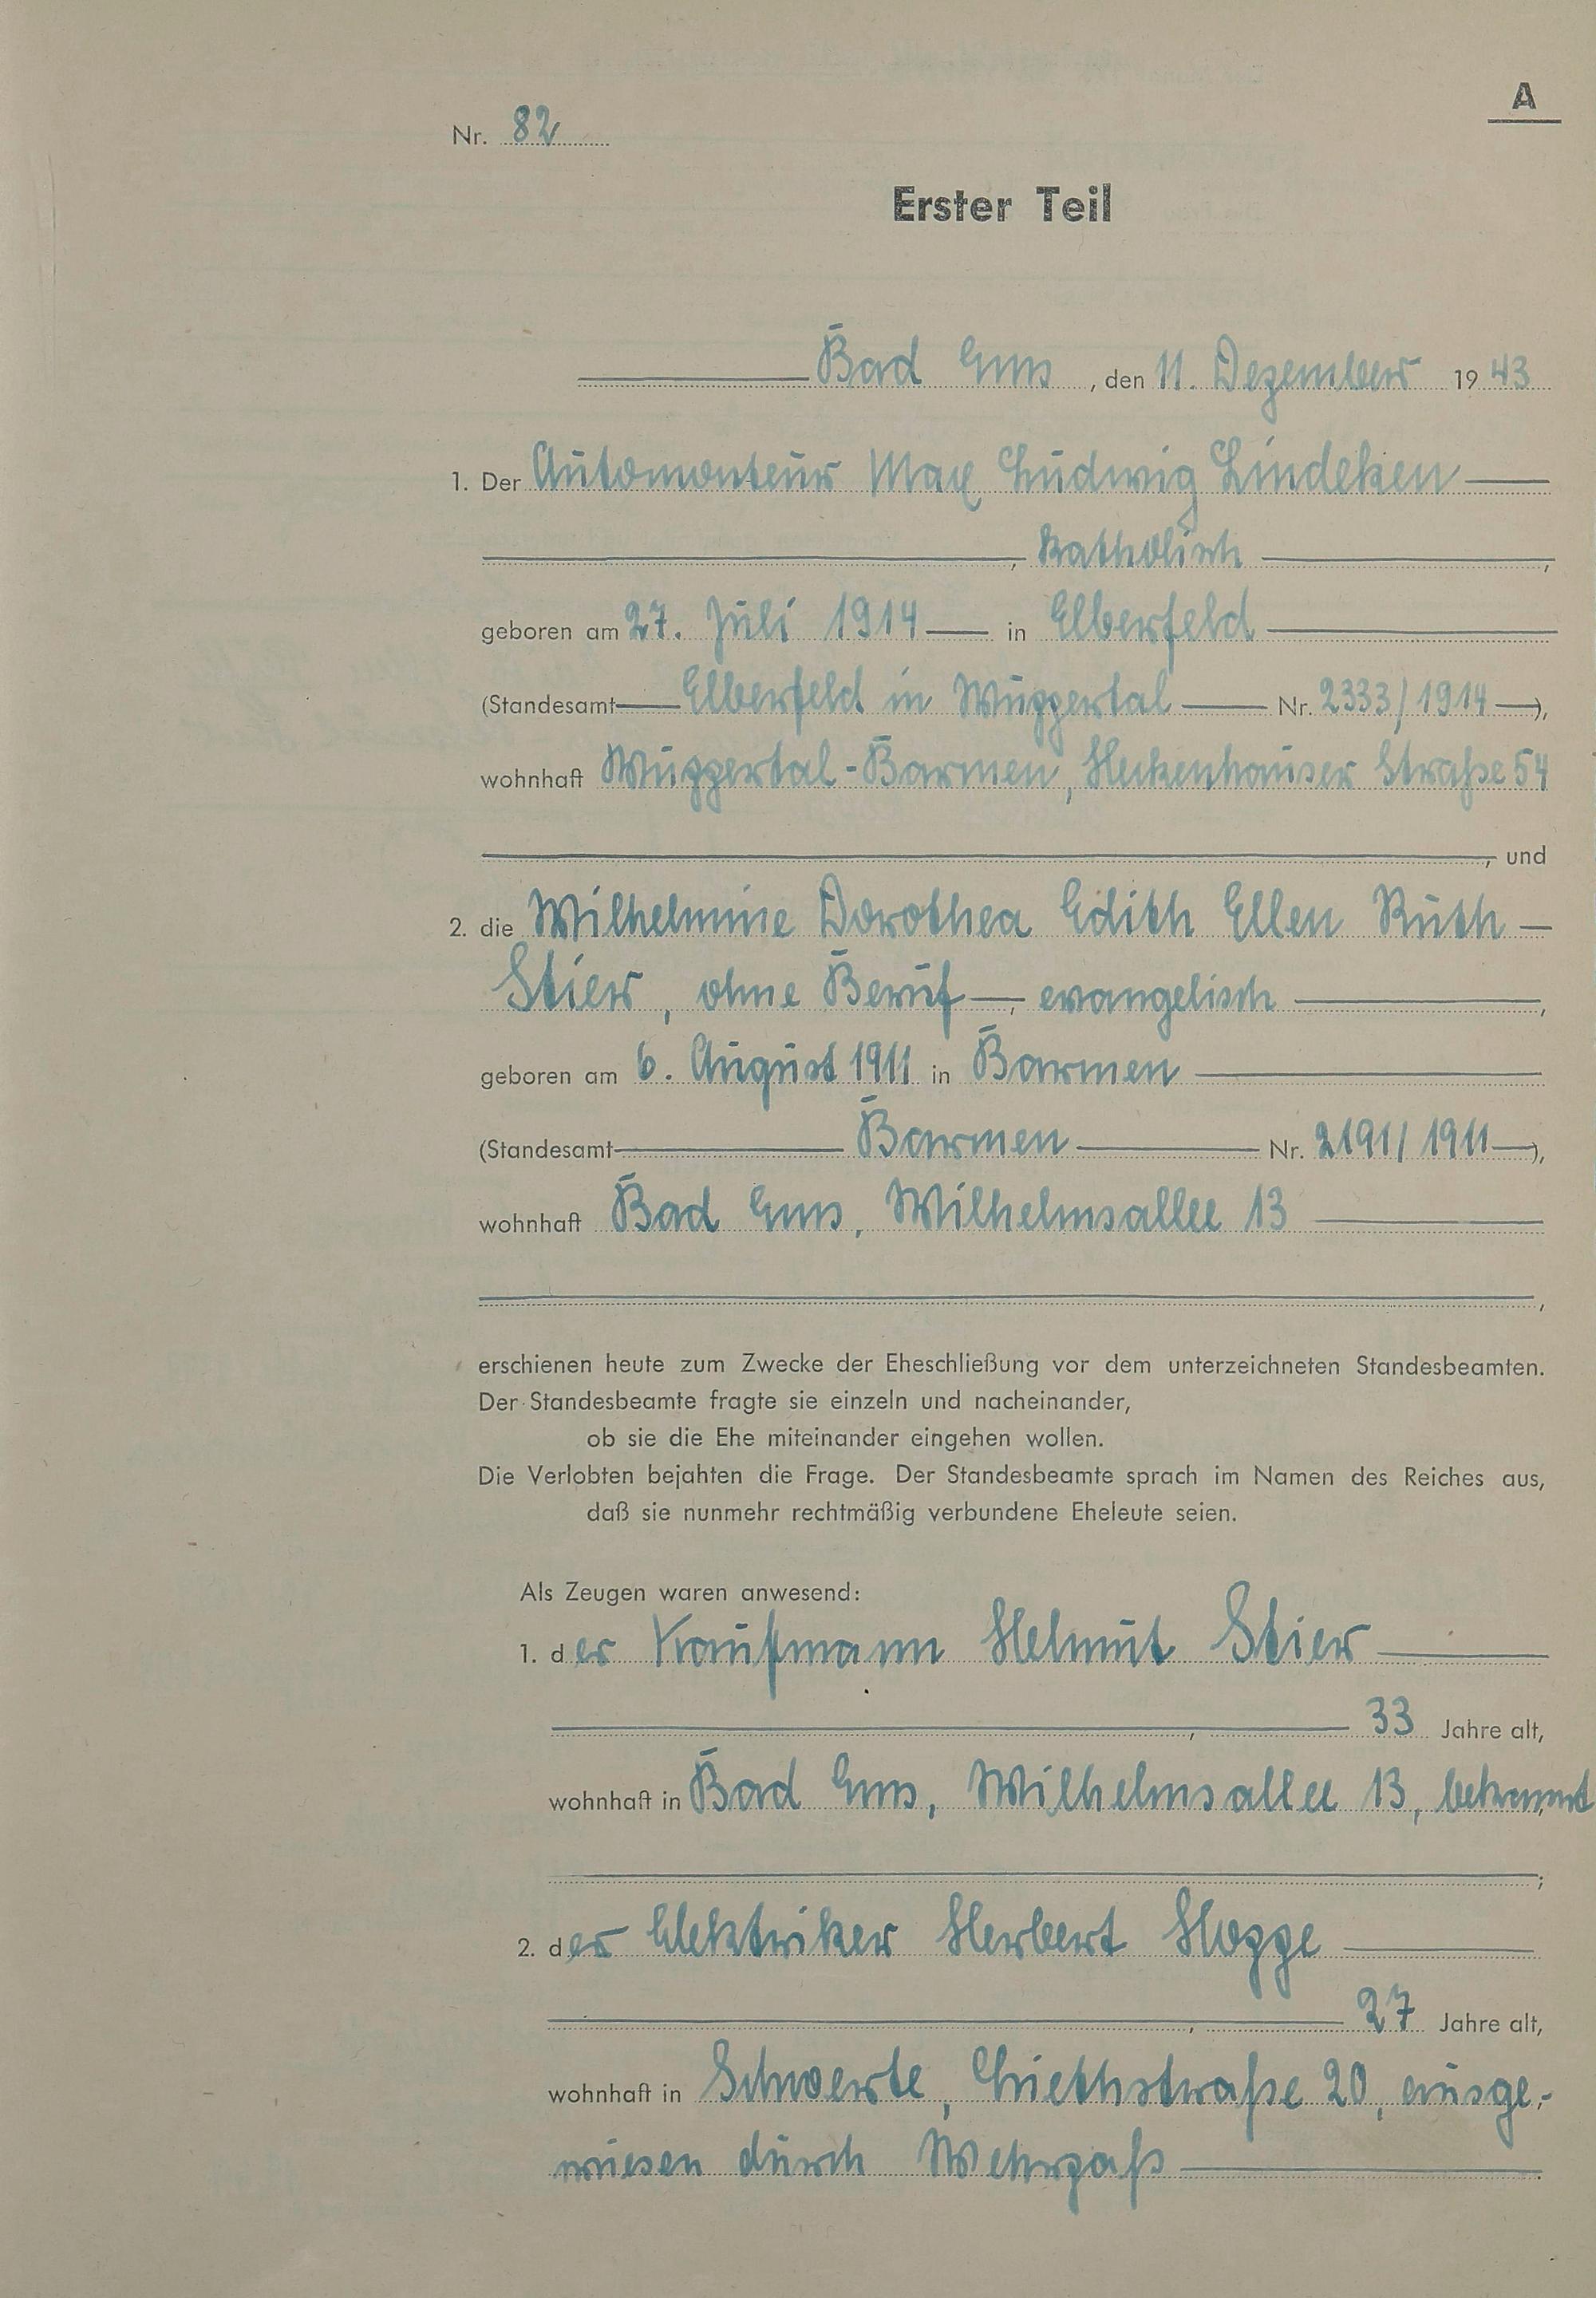 A
Nr. 82
Erster Teil
Bad Ems, den 11. Dezember 1943
1. Der Automonteur Max Ludwig Lindeken
, katholisch,
geboren am 27. Juli 1914 in Elberfeld
(Standesamt Elberfeld in Wuppertal Nr. 2333/1914),
wohnhaft Wuppertal-Barmen, Heckenhauser Straße 54
, und
2. die Wilhelmine Dorothea Edith Ellen Ruth
Stier, ohne Beruf, evangelisch,
geboren am 6. August 1911 in Barmen
(Standesamt Barmen Nr. 2191/1911),
wohnhaft Bad Ems, Wilhelmsallee 13
,
erschienen heute zum Zwecke der Eheschließung vor dem unterzeichneten Standesbeamten.
Der Standesbeamte fragte sie einzeln und nacheinander,
ob sie die Ehe miteinander eingehen wollen.
Die Verlobten bejahten die Frage. Der Standesbeamte sprach im Namen des Reiches aus,
daß sie nunmehr rechtmäßig verbundene Eheleute seien.
Als Zeugen waren anwesend:
1. der Kaufmann Helmut Stier
, 33 Jahre alt,
wohnhaft in Bad Ems, Wilhelmsallee 13, bekannt
;
2. der Elektriker Herbert Hoppe
, 27 Jahre alt,
wohnhaft in Schwerte, 20, ausge-
wiesen durch Wehrpaß.